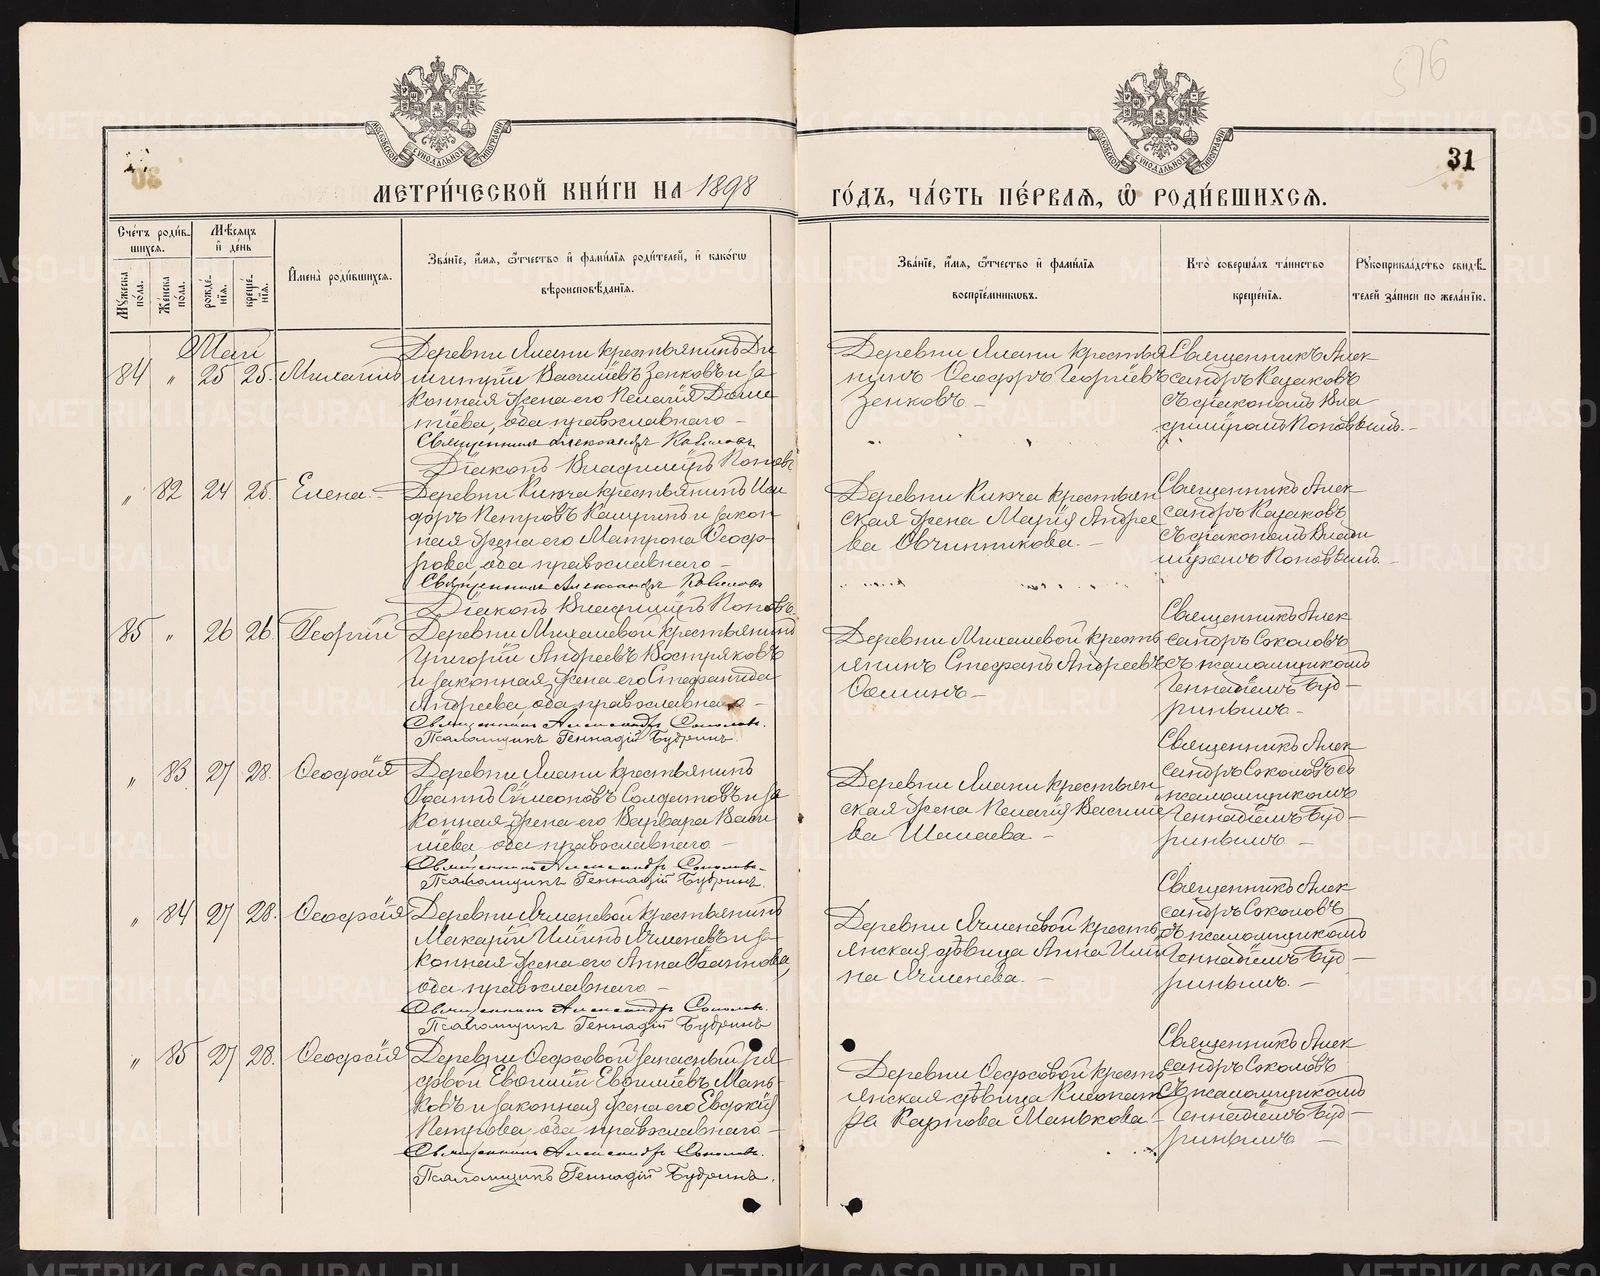 576
31
МЕТРИ́ЧЕСКОЙ КНИ́ГИ НА 1898
ГО́ДЪ, ЧА́СТЬ ПЕ́РВАЯ, Ѽ РОДИ́ВШИХСЯ.
Сче́тъ роди́в-
шихся.
Мѣ́сяцъ
и҆ де́нь
Мꙋ́жеска по́ла.
Же́нска по́ла.
рожде́-
нїя.
креще́-
нїя.
И҆мена̀ роди́вшихся.
Зва́нїе, и҆́мя, ѻ҆́тчество и҆ фами́лїя роди́телей, и҆ како́гѡ
вѣроисповѣ́данїя.
Зва́нїе, и҆́мя, ѻ҆́тчество и҆ фами́лїя
воспрїе́мникѡвъ.
Кто̀ соверша́лъ та́инство
креще́нїя.
Рꙋкоприкла́дство свидѣ́-
телей за́писи по жела́нїю.
Май
84 " 25 25. Михаилъ
Деревни Ялани крестьянинъ Ди
митрій Васильевъ Зенковъ и за
конная жена его Пелагія Дани
, оба православнаго –
Священникъ Александръ
Діаконъ Владиміръ Поповъ
Деревни Ялани крестья
нинъ Ѳеодоръ Георгіевъ
Зенковъ –
Священникъ Алек
сандръ Казаковъ
съ діакономъ Вла
диміромъ Поповымъ. –
" 82 24 25. Елена –
Деревни Ключа крестьянинъ Иси
доръ Петровъ Кашринъ и закон
ная жена его Матрона Ѳеодо
рова, оба православнаго –
Священникъ Александръ
Діаконъ Владиміръ Поповъ.
Деревни Ключа крестьян
ская жена Марія Андрее
ва Овчинникова. –
Священникъ Алек
сандръ Казаковъ
съ діакономъ Влади
міромъ Поповымъ. –
85 " 26 26. Георгій
Деревни Михалевой крестьянинъ
Григорій Андреевъ Востряковъ
и законная жена его Стефанида
Андреева, оба православнаго –
Священникъ Александръ Соколовъ.
Псаломщикъ Геннадій Будринъ.
Деревни Михалевой кресть
янинъ Стефанъ Андреевъ
–
Священникъ Алек
сандръ Соколовъ
съ псаломщикомъ
Геннадіемъ Буд –
ринымъ –
" 83 27 28. Ѳеодосія
Деревни Ялани крестьянинъ
Іоаннъ Сѵмеоновъ Солдатовъ и за
конная жена его Варвара Васи
ліева оба православнаго –
Священникъ Александръ Соколовъ.
Псаломщикъ Геннадій Будринъ.
Деревни Ялани крестьян
ская жена Пелагія Василіе
ва Шалаева –
Священникъ Алек
сандръ Соколовъ съ
псаломщикомъ
Геннадіемъ Буд –
ринымъ –
" 84 27 28. Ѳеодосія
Деревни Ячменевой крестьянинъ
Макарій Ильинъ Ячменевъ и за
конная жена его Анна Іоаннова,
оба православнаго –
Священникъ Александръ Соколовъ.
Псаломщикъ Геннадій Будринъ
Деревни Ячменевой кресть
янская дѣвица Анна Ильи
на Ячменева. –
Священникъ Алек
сандръ Соколовъ
съ псаломщикомъ
Геннадіемъ Буд –
ринымъ. –
" 85 27 28. Ѳеодосія
Деревни Ѳедосовой запасный ря
довой Евѳимій Евѳиміевъ Мань
ковъ и законная жена его Евдокія
Петрова оба православнаго –
Священникъ Александръ Соколовъ.
Псаломщикъ Геннадій Будринъ.
Деревни Ѳедосовой кресть
янская дѣвица Клеопат
ра Карпова Манькова –
Священникъ Алек
сандръ Соколовъ
съ псаломщикомъ
Геннадіемъ Буд –
ринымъ –
METRIKI.GASO-URAL.RU